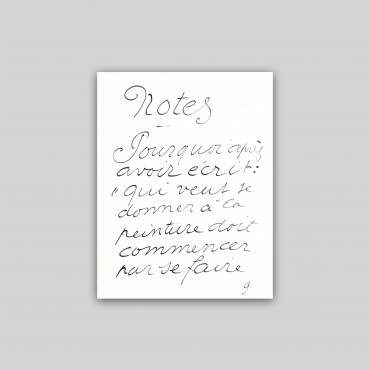 Notes
—
Pourquoi après
avoir écrit :
"qui veut se
donner à la
peinture doit
commencer
par se faire
9